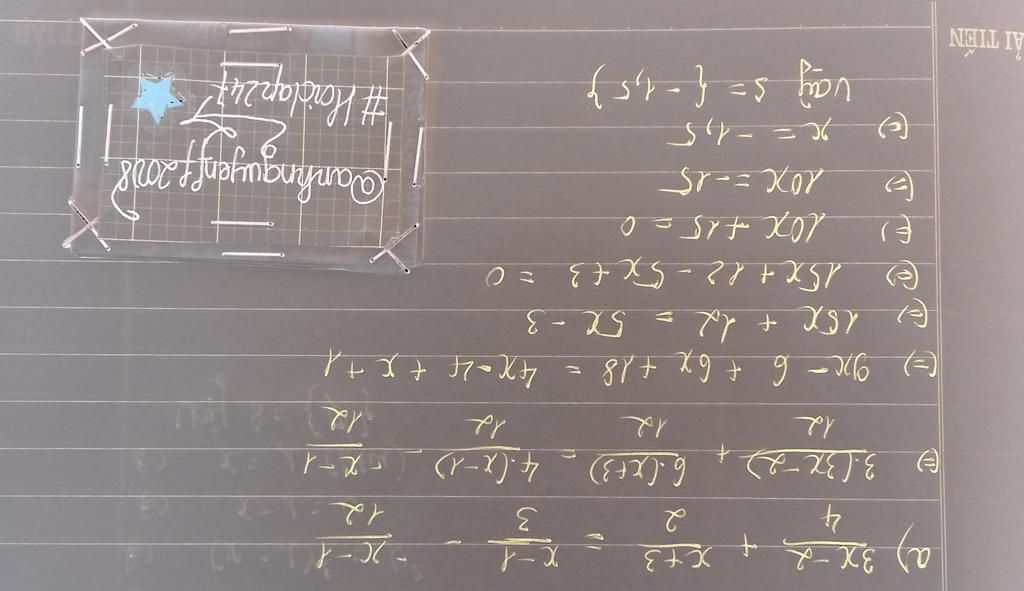 a) \frac{3x-2}{4} + \frac{x+3}{2} = \frac{x-1}{3} - \frac{-x-1}{12}
(=) \frac{3.(3x-2)}{12} + \frac{6.(x+3)}{12} = \frac{4.(x-1)}{12} - \frac{-x-1}{12}
(=) 9x - 6 + 6x + 18 = 4x - 4 + x + 1
(=) 15x + 12 = 5x - 3
(=) 15x + 12 - 5x + 3 = 0
(=) 10x + 15 = 0
(=) 10x = -15
(=) x = -1,5
Vậy S = {-1,5}
@anhnguyenff2008
#Hoidap247
ẢI TIẾN